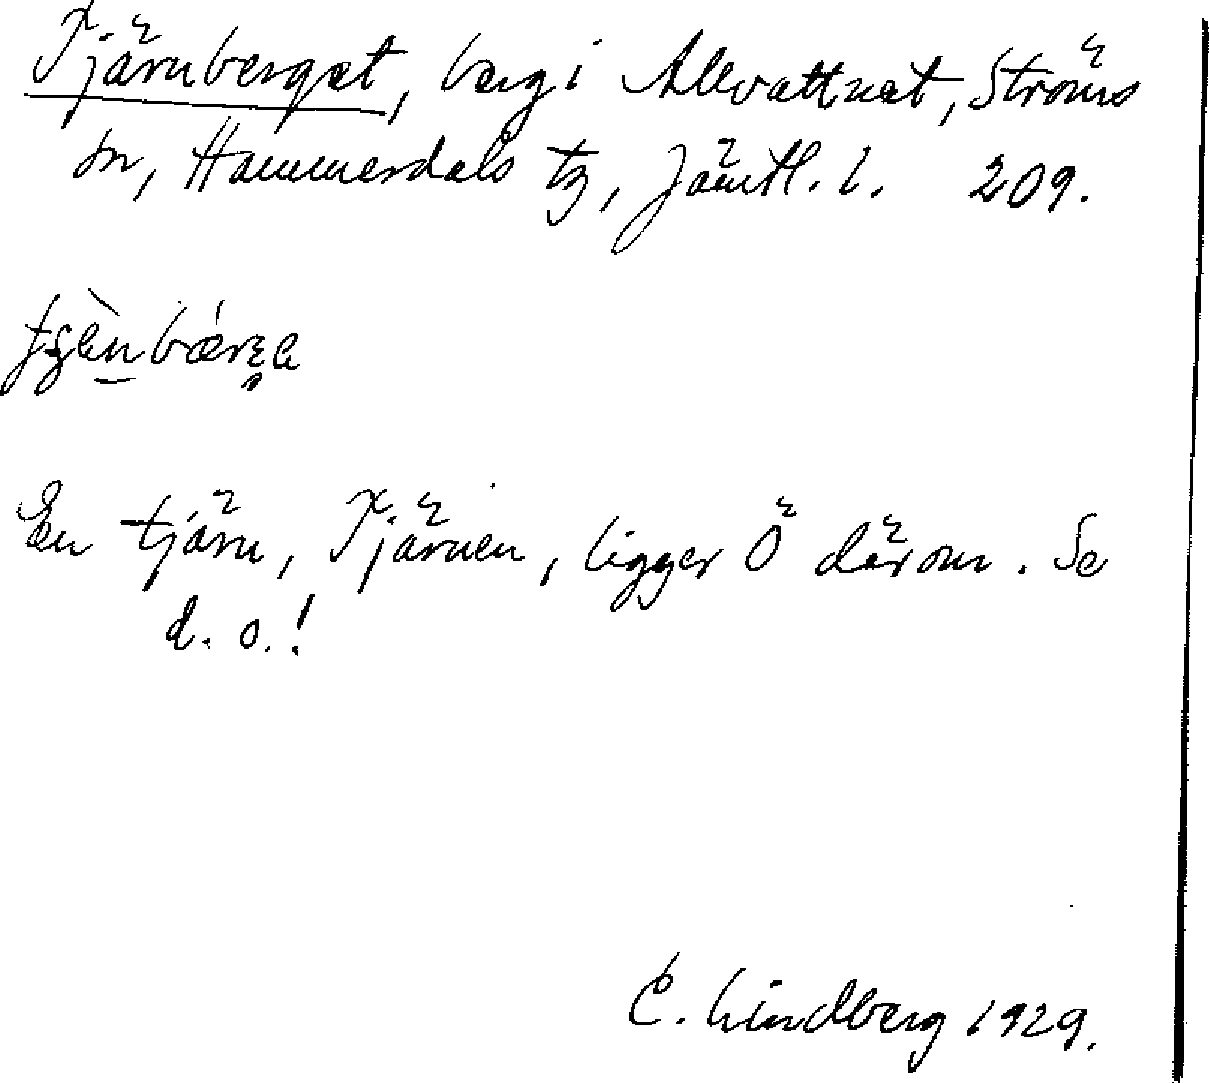 Tjärnberget, berg i Allvattnet, Ströms
sn, Hammerdals tg, Jämtl. l. 209.
En tjärn, Tjärnen, ligger Ö därom. Se
d. o.!
C. Lindberg 1929.